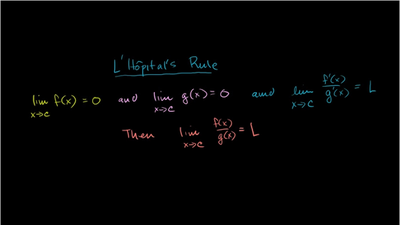 L'Hôpital's Rule
lim x→c f(x) = 0 and lim x→c g(x) = 0 and lim x→c f'(x)/g'(x) = L
Then lim x→c f(x)/g(x) = L